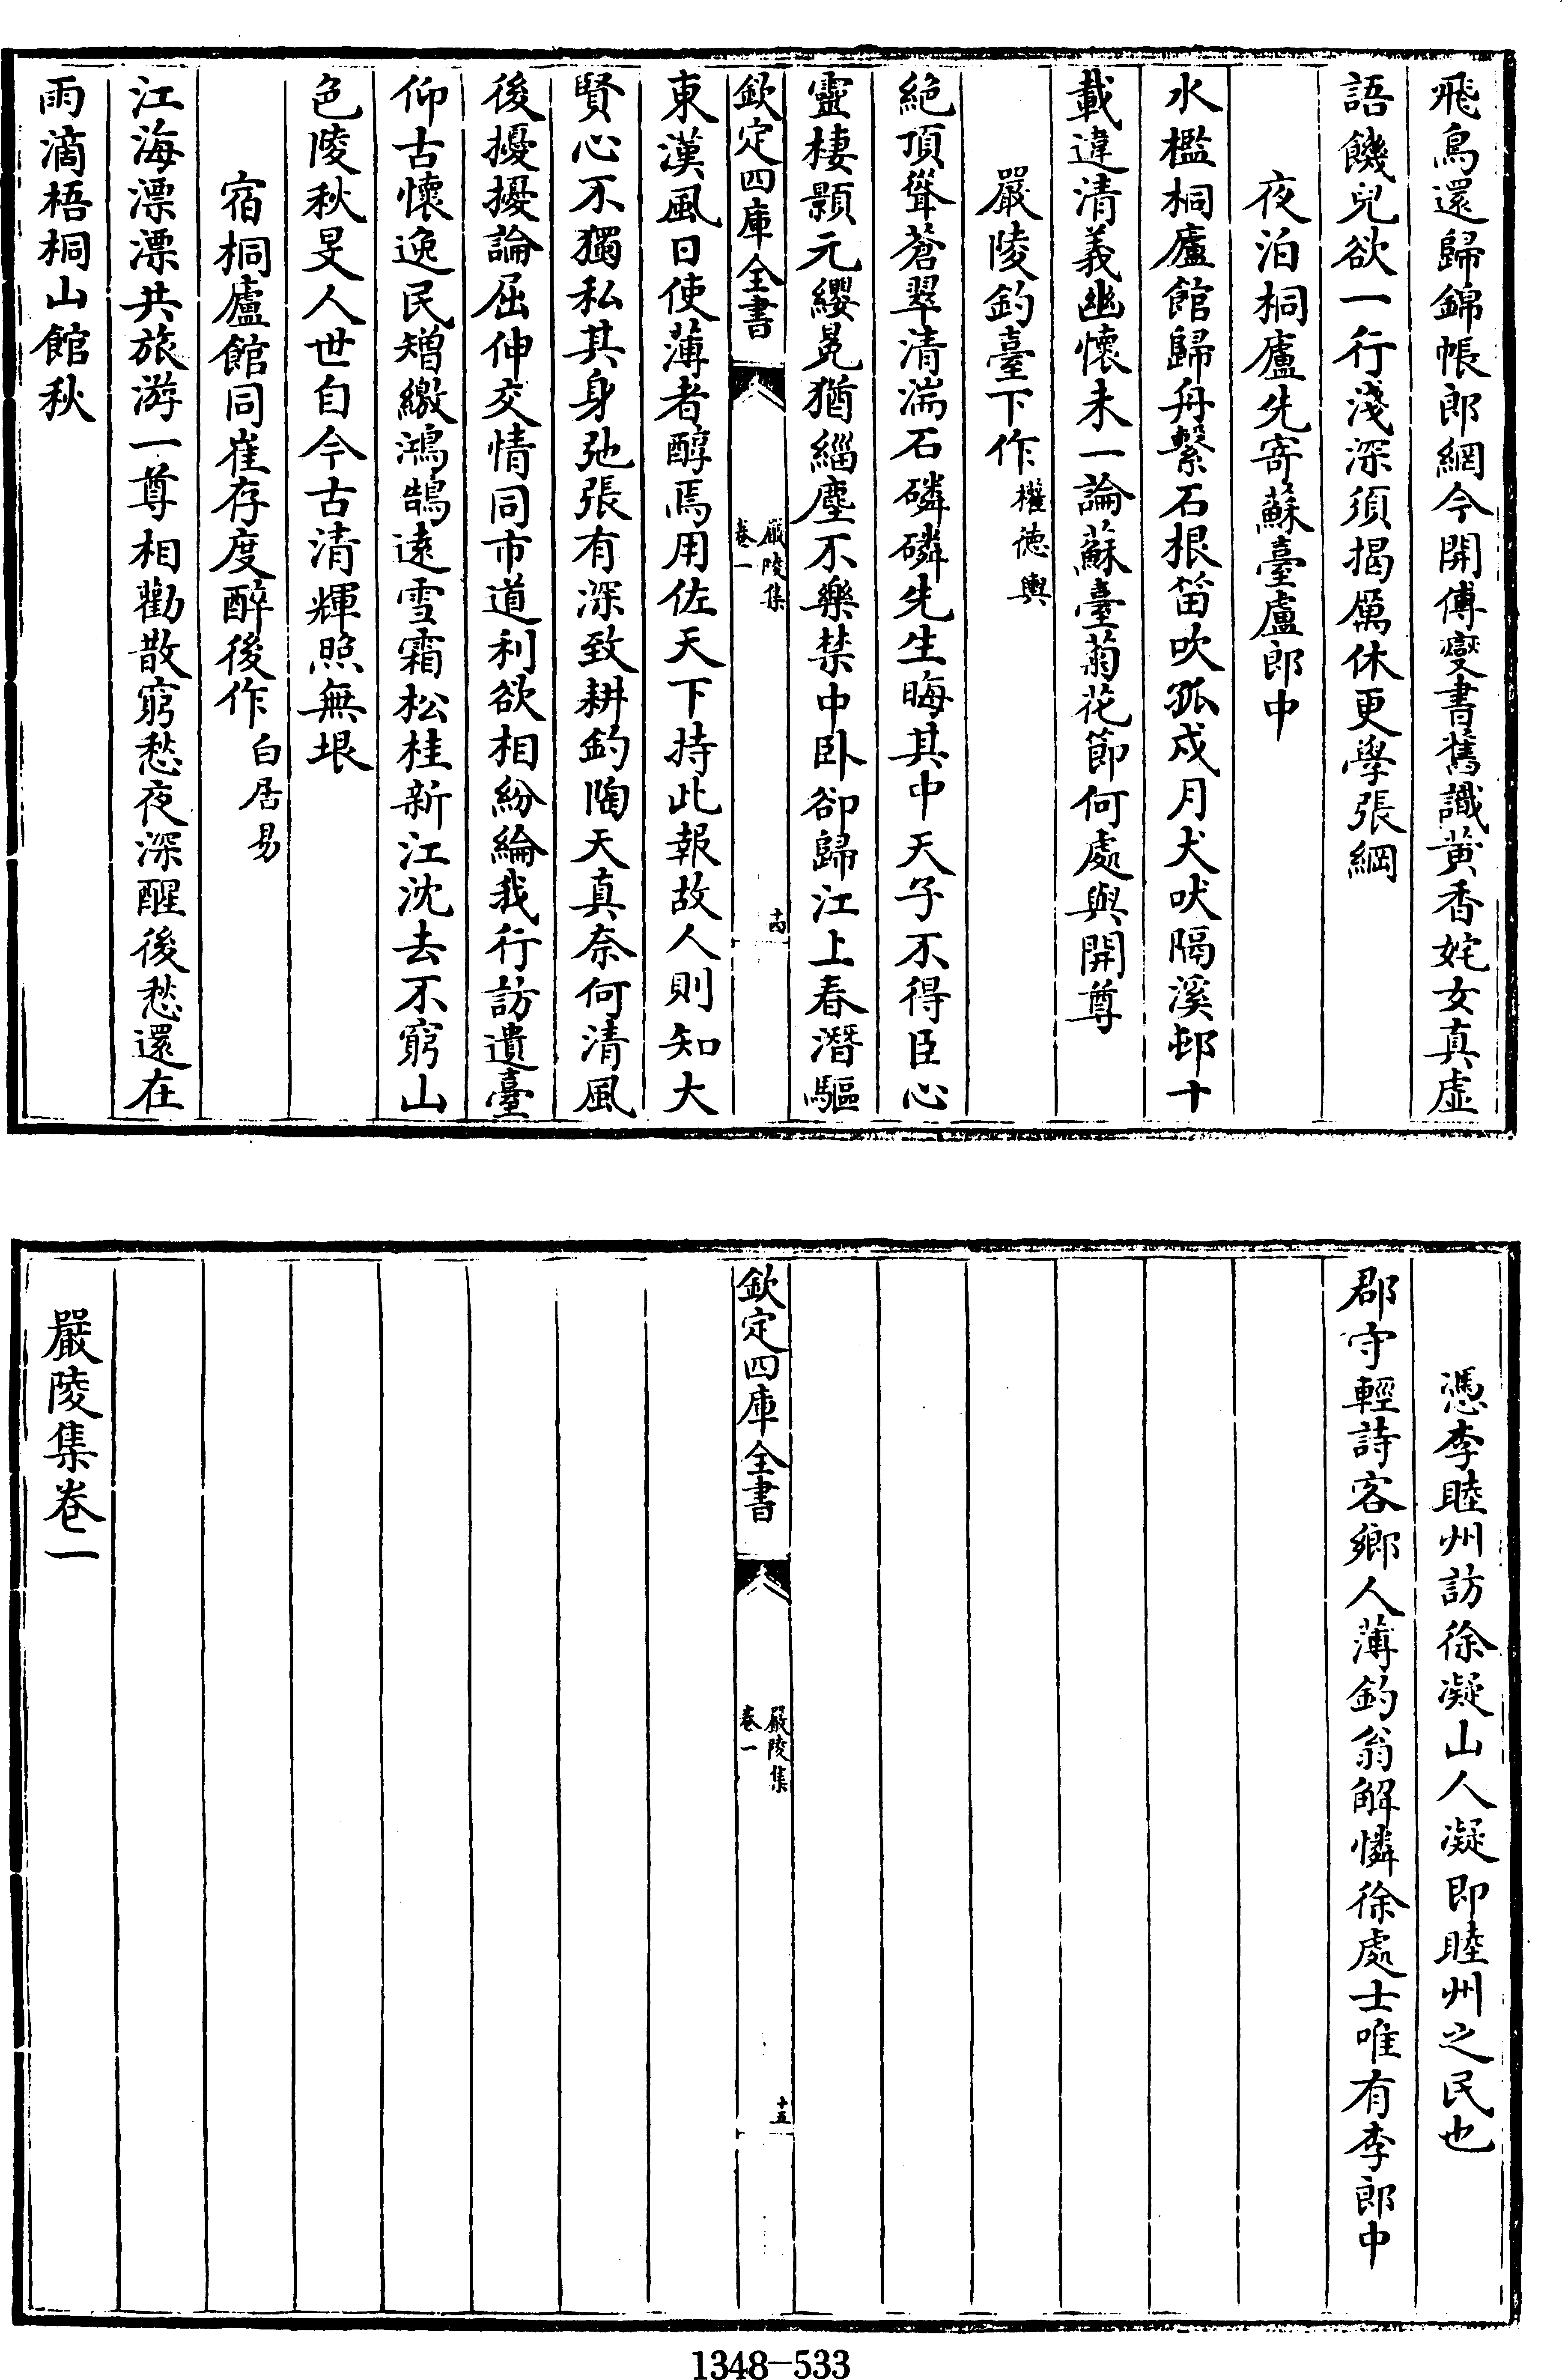 飛鳥還歸錦帳郎網今開傅燮書舊識黄香姹女真虚
語饑兒欲一行淺深須揭厲休更學張綱
夜泊桐廬先寄蘇臺盧郎中
水檻桐廬館歸舟繫石根笛吹孤戍月犬吠隔溪邨十
載違清義幽懷未一論蘇臺菊花節何處與開尊
嚴陵釣臺下作權德輿
絶頂聳蒼翠清湍石磷磷先生晦其中天子不得臣心
靈棲顥元纓冕猶緇塵不樂禁中卧卻歸江上春潛驅
欽定四庫全書
嚴陵集
卷一
十四
東漢風日使薄者醇焉用佐天下持此報故人則知大
賢心不獨私其身弛張有深致耕釣陶天真奈何清風
後擾擾論屈伸交情同市道利欲相紛綸我行訪遺臺
仰古懷逸民矰繳鴻鵠遠雪霜松桂新江沈去不窮山
色陵秋旻人世自今古清輝照無垠
宿桐廬館同崔存度醉後作白居易
江海漂漂共旅游一尊相勸散窮愁夜深醒後愁還在
雨滴梧桐山館秋
憑李睦州訪徐凝山人凝即睦州之民也
郡守輕詩客鄉人薄釣翁解憐徐處士唯有李郎中
欽定四庫全書
嚴陵集
卷一
十五
嚴陵集卷一
1348-533